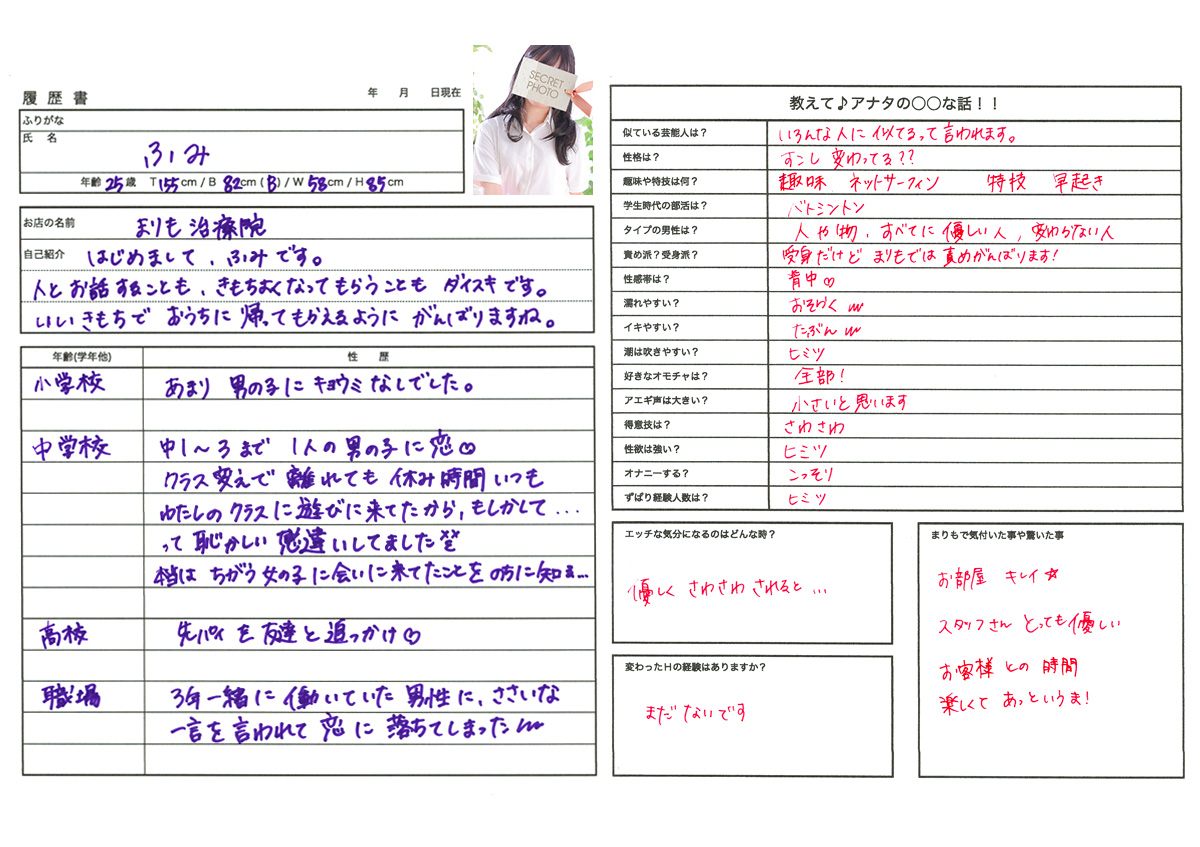 履歴書
年 月 日現在
SECRET PHOTO
ふりがな
氏 名
ふみ
年齢 25歳 T155cm / B 82cm (B) / W 58cm / H 85cm
お店の名前 まりも治療院
自己紹介 はじめまして、ふみです。
人とお話することも、きもちよくなってもらうことも ダイスキです。
いいきもちで おうちに 帰ってもらえるように がんばりますね。
年齢(学年他) 性 歴
小学校 あまり 男の子に キョウミなしでした。
中学校 中1〜3まで 1人の男の子に恋♡
クラス変えで 離れても 休み時間いつも
わたしのクラスに遊びに来てたから, もしかして...
って 恥かしい 感違いしてました
本当は ちがう女の子に会いに来てたことを のちに知る...
高校 先パイを友達と追っかけ♡
職場 3年一緒に働いていた男性に, ささいな
一言を言われて 恋に 落ちてしまった
教えて♪アナタの○○な話！！
似ている芸能人は？ いろんな人に似てるって言われます。
性格は？ すこし 変わってる??
趣味や特技は何？ 趣味 ネットサーフィン 特技 早起き
学生時代の部活は？ バトミントン
タイプの男性は？ 人や物、すべてに優しい人, 変わらない人
責め派？受身派？ 受身だけど まりもでは 責めがんばります!
性感帯は？ 背中♡
濡れやすい？ おそらく
イキやすい？ たぶん
潮は吹きやすい？ ヒミツ
好きなオモチャは？ 全部!
アエギ声は大きい？ 小さいと思います
得意技は？ さわさわ
性欲は強い？ ヒミツ
オナニーする？ こっそり
ずばり経験人数は？ ヒミツ
エッチな気分になるのはどんな時？
優しく さわさわ されると...
変わったHの経験はありますか？
まだ ないです
まりもで気付いた事や驚いた事
お部屋 キレイ☆
スタッフさん とっても優しい
お客様 との 時間
楽しくて あっというま!